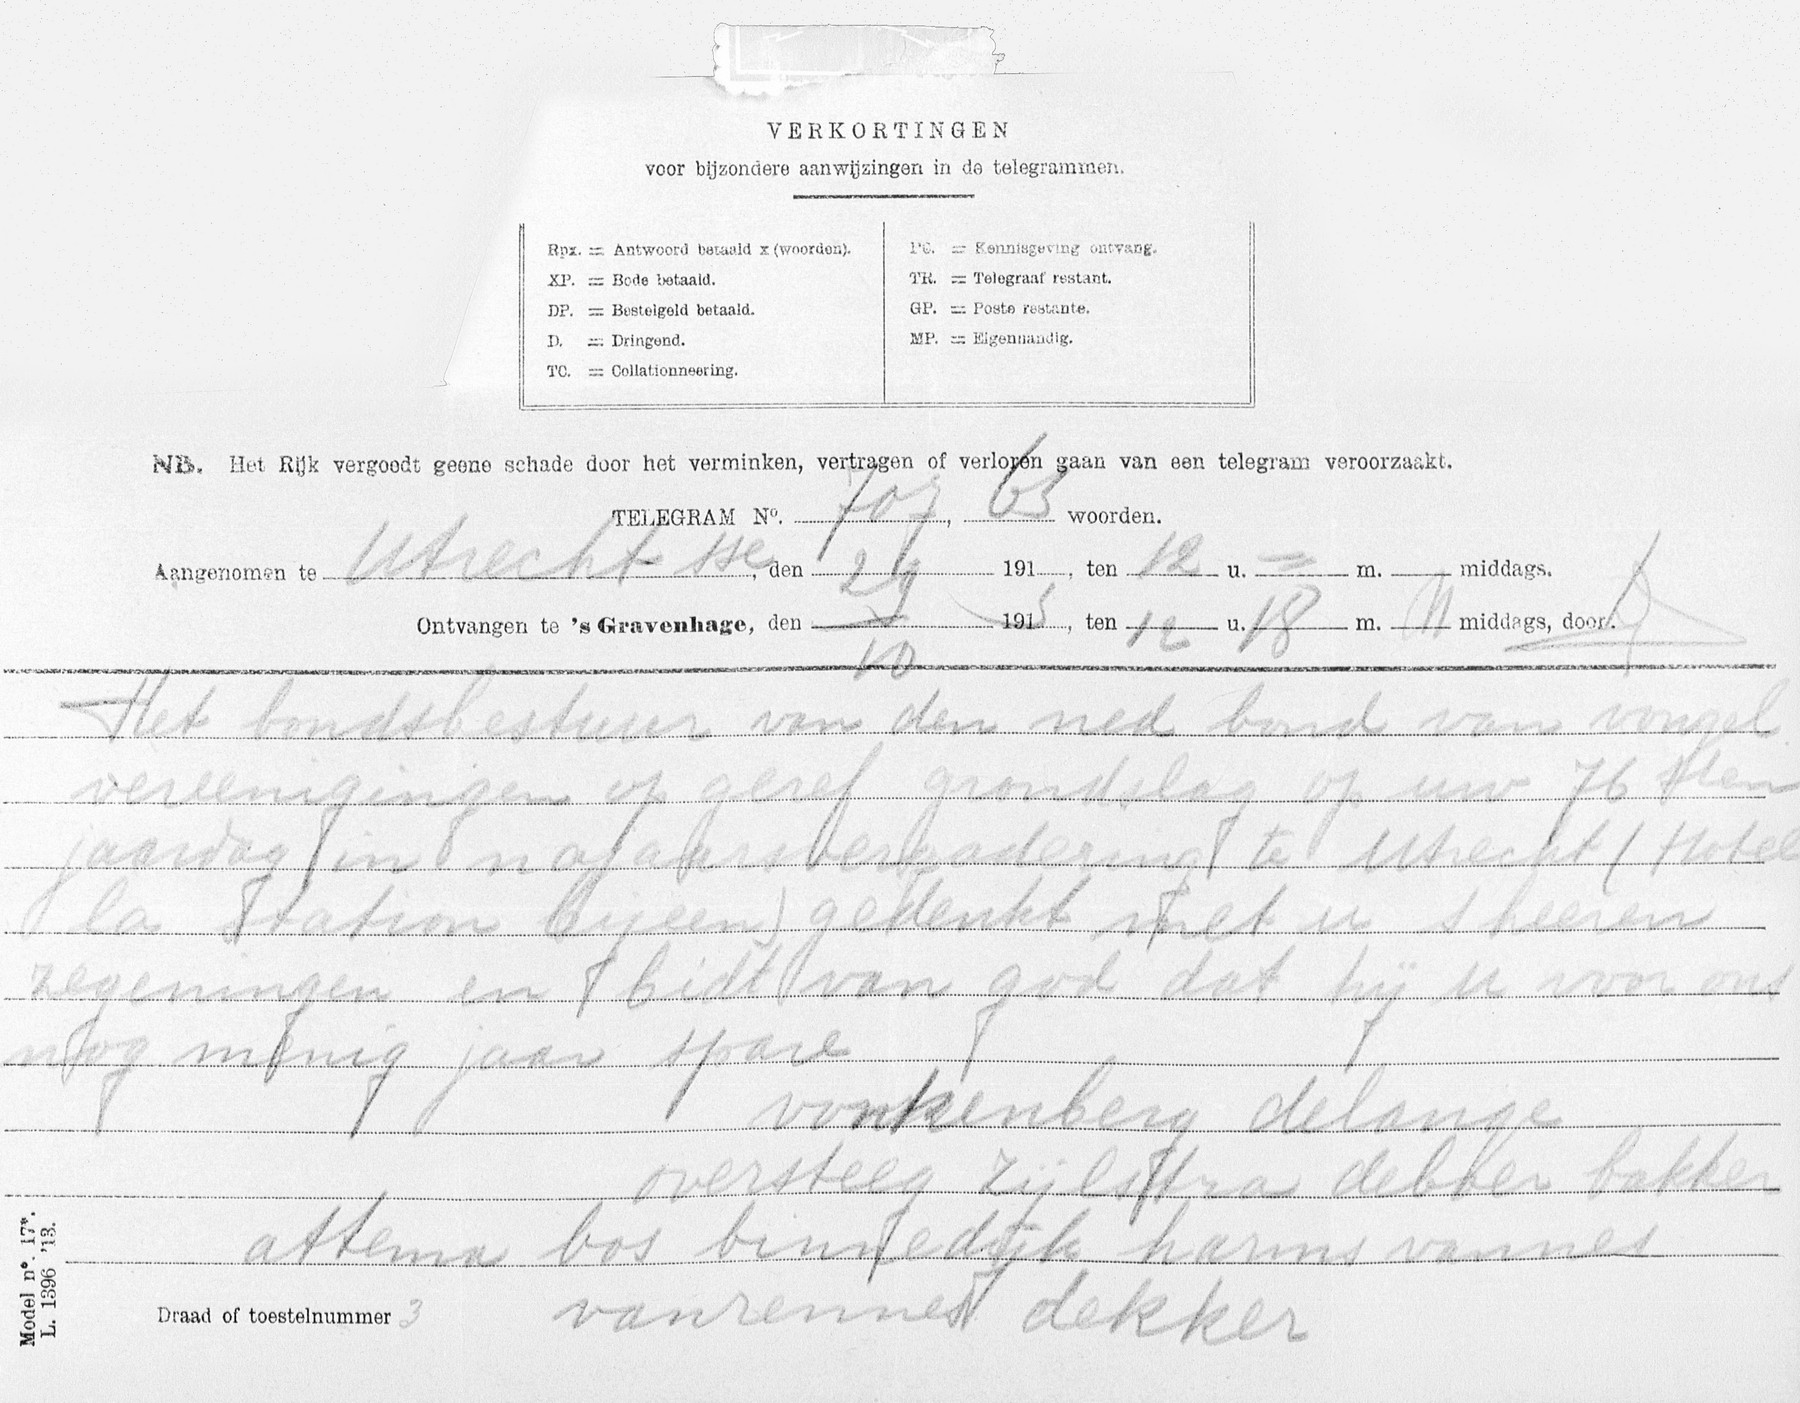 VERKORTINGEN
voor bijzondere aanwijzingen in de telegrammen.
Rpx. = Antwoord betaald x (woorden).
XP. = Bode betaald.
DP. = Bestelgeld betaald.
D. = Dringend.
TC. = Collationneering.
PC. = Kennisgeving ontvang.
TR. = Telegraaf restant.
GP. = Poste restante.
MP. = Eigenhandig.
NB. Het Rijk vergoedt geene schade door het verminken, vertragen of verloren gaan van een telegram veroorzaakt.
TELEGRAM No. 707, 63 woorden.
Aangenomen te Utrecht sse, den 191 , ten 12 u. = m. middags.
Ontvangen te 's Gravenhage, den 29/10 1913, ten 12 u. 18 m. middags, door:
Het bondsbestuur van den ned bond van vongel
vereenigingen op geref grondslag op uw 76 sten
jaardag in najaarsvergadering te Utrecht (Hotel
la Station bijeen) gedenkt met u s heeren
zegeningen en bidt van god dat hij u voor ons
nog menig jaar spare
vonkenberg delange
oversteeg zijlstra debber bakker
attema bos binnedijk harms vannes
vanrennes dekker
Draad of toestelnummer 3
Model no. 17*.
L. 1396 '13.